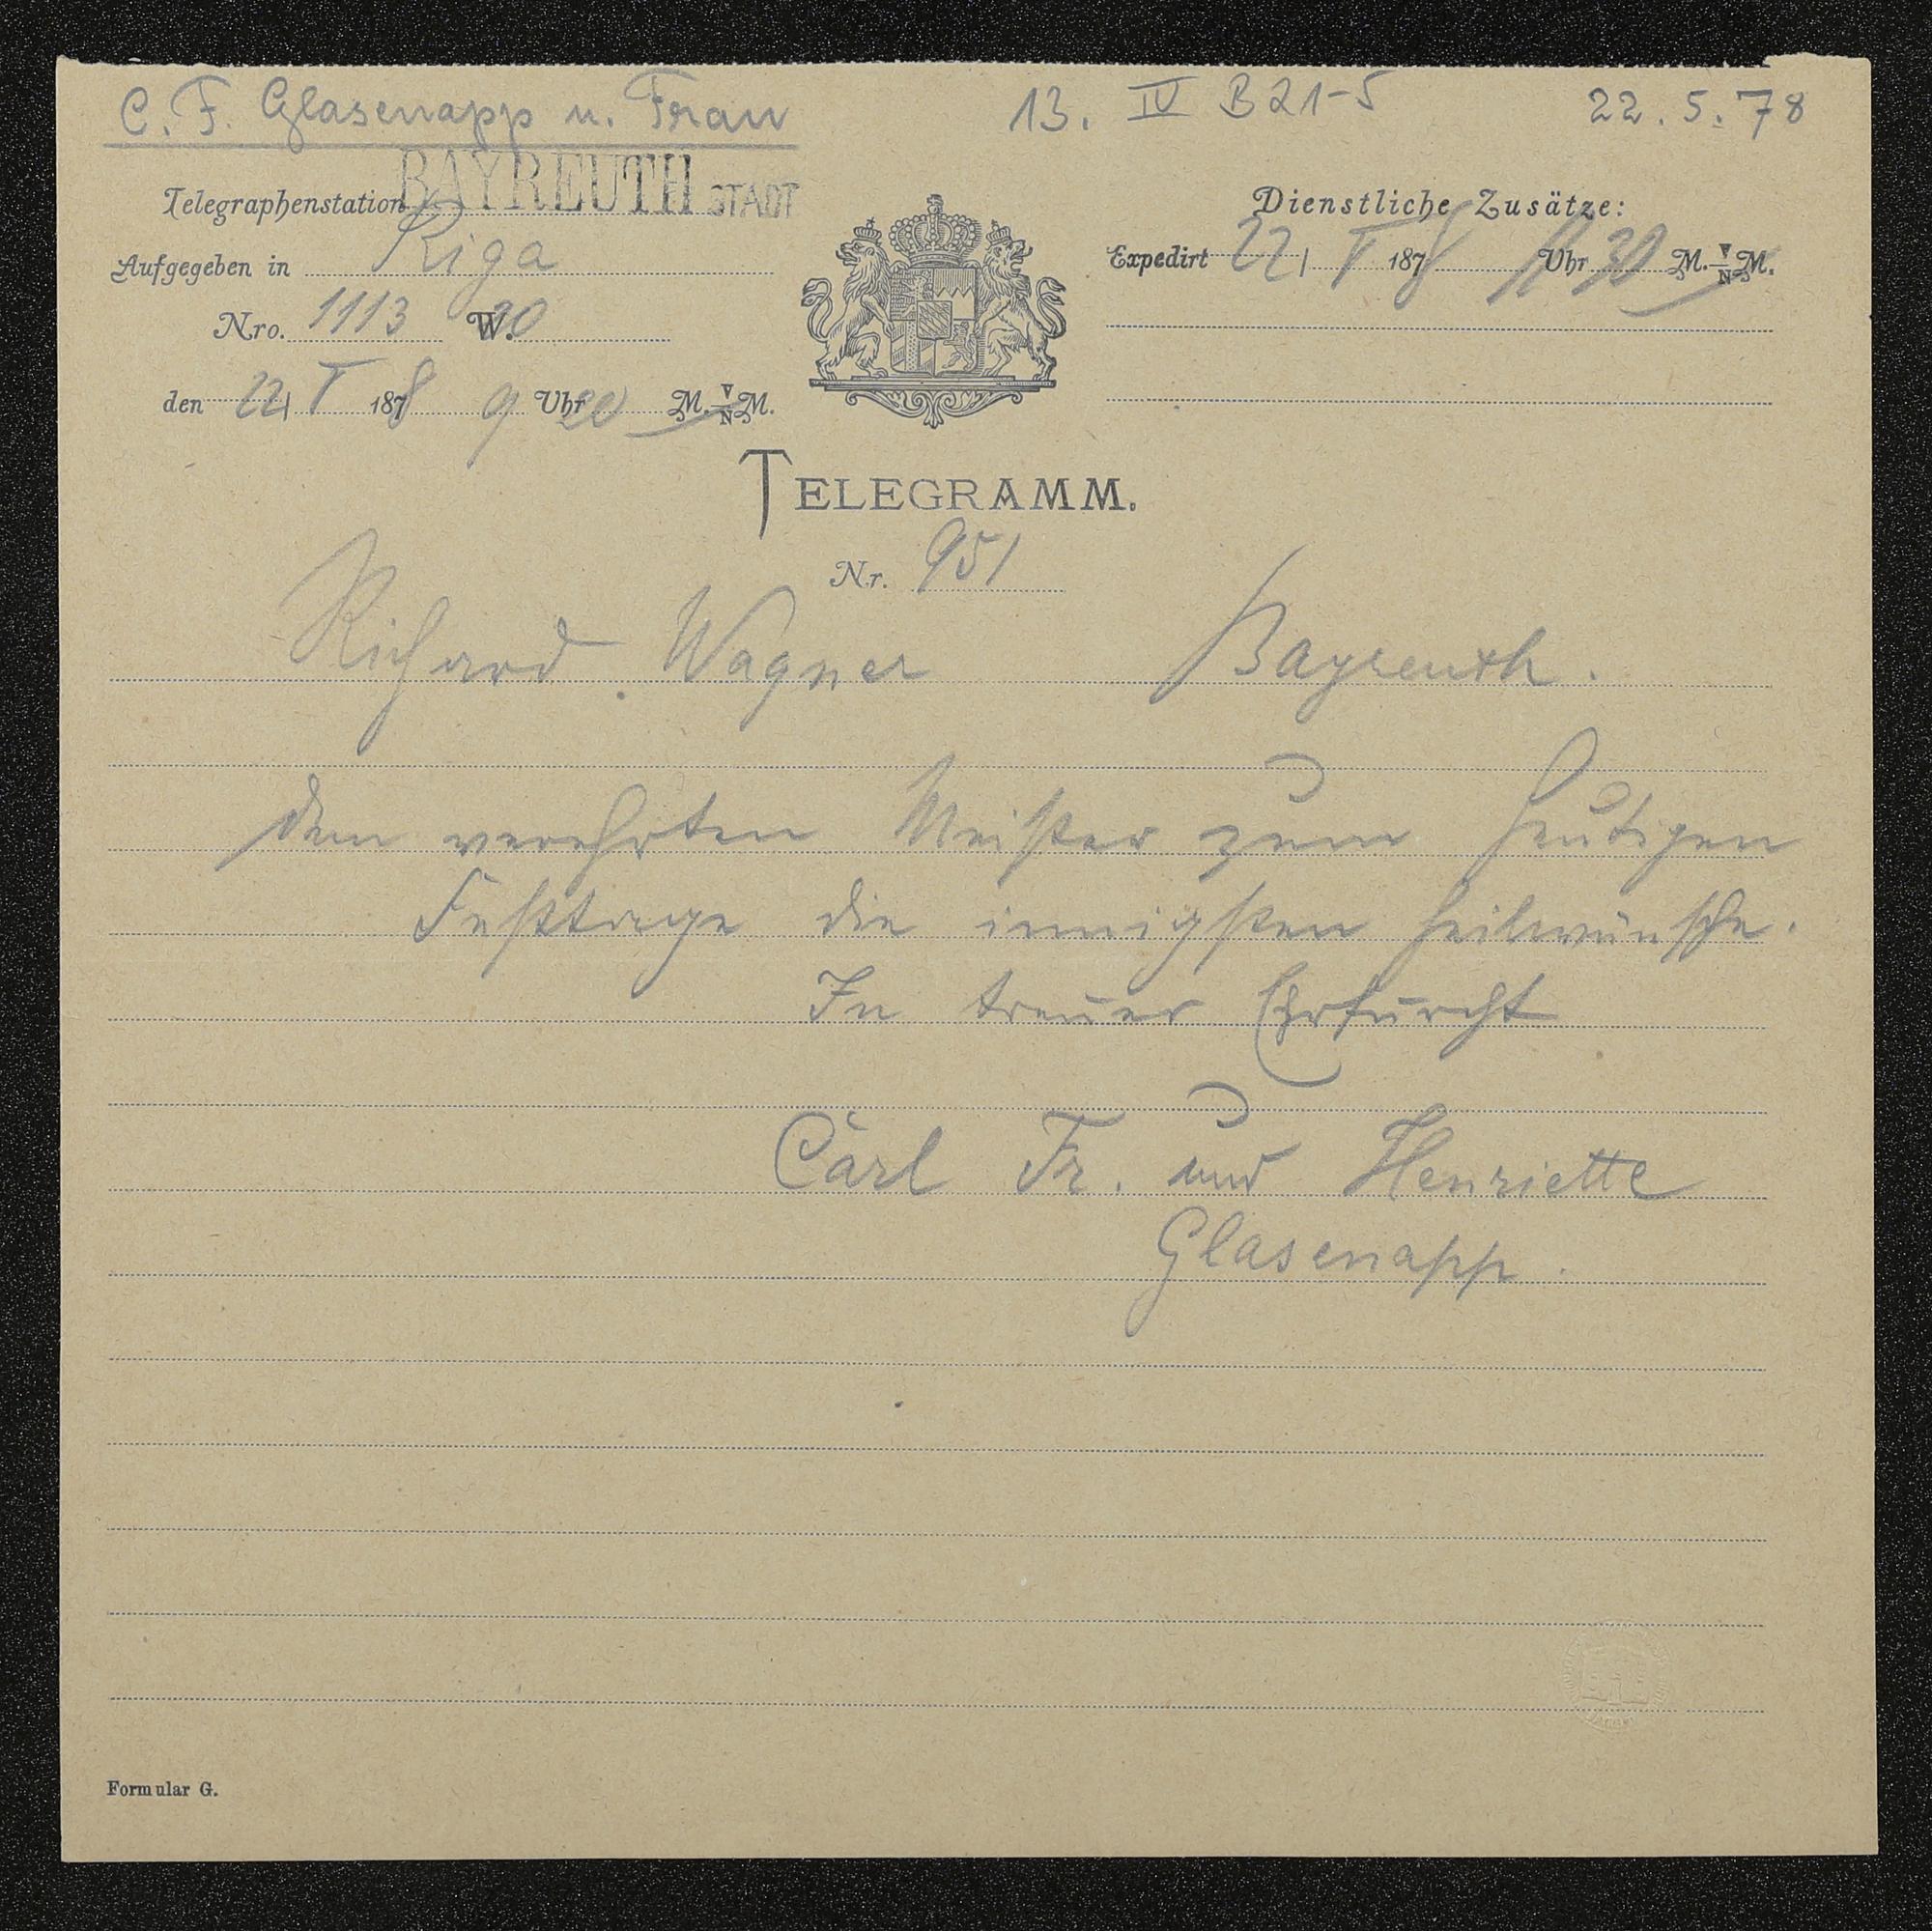 C. F. Glasenapp u. Frau 13. IV B 21-5 22.5.78
Telegraphenstation BAYREUTH STADT
Dienstliche Zusätze:
Aufgegeben in Riga
Expedirt 22/ V 1878 11 Uhr 30 M. V/N M.
Nro. 1113 W. 20
den 22/ V 1878 9 Uhr 20 M. V/N M.
TELEGRAMM.
Nr. 951
Richard Wagner Bayreuth.
dem verehrten Meister zum heutigen
Festtage die innigsten heilwünsche.
In treuer Ehrfurcht
Carl Fr. und Henriette
Glasenapp.
Formular G.